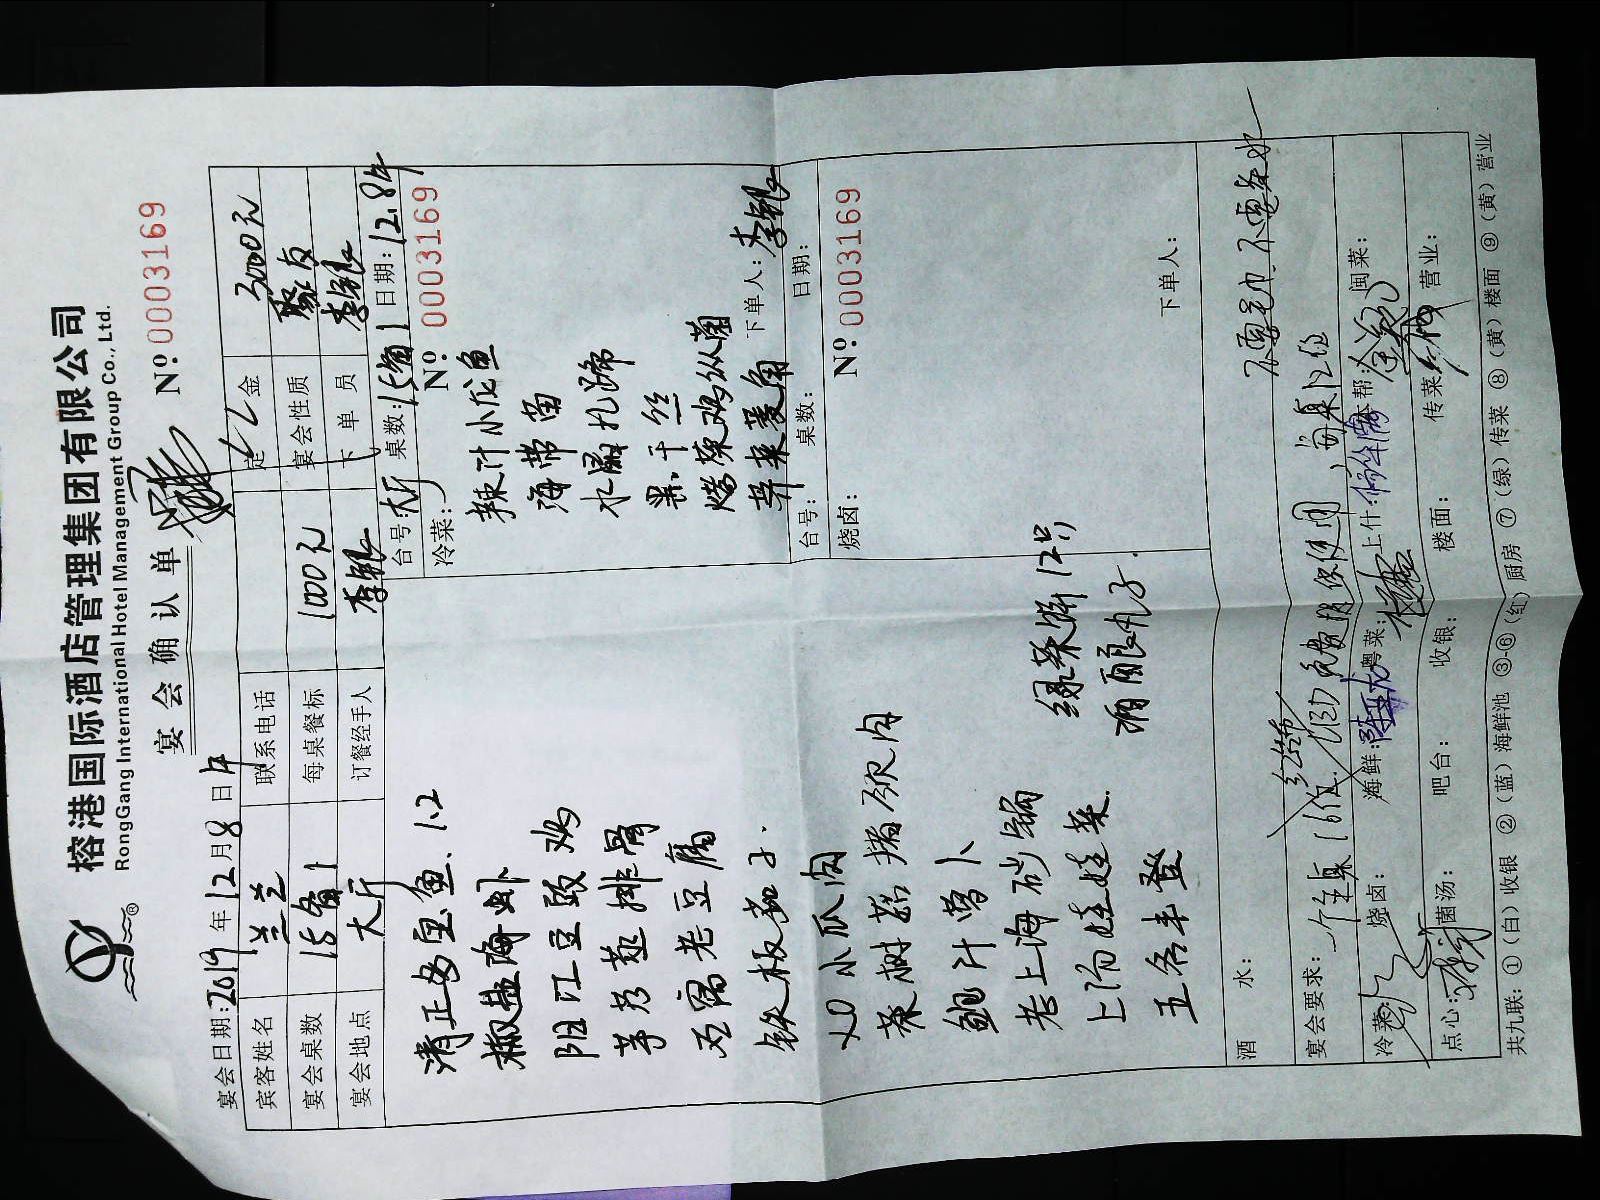 榕港国际酒店管理集团有限公司
RongGang International Hotel Management Group Co., Ltd.
宴会确认单
№ 0003169
宴会日期:2019年12月8日中
宾客姓名 兰兰 联系电话 定金 3000元
宴会桌数 15备1 每桌餐标 1000元 宴会性质 聚友
宴会地点 大厅 订餐经手人 李银 下单员 李银
台号:大厅 桌数:15备1 日期:12.8中
冷菜: № 0003169
辣汁小龙鱼
海带苗
水晶扎蹄
黑干丝
烧菜鸡纵菌
弄来菱角
下单人:李银
清正多宝鱼 1.2
椒盐海虾
阳江豆豉鸡
茅茨菰排骨
石窝老豆腐
铁板茄子.
XO小瓜肉
茶树菇猪颈肉
鲍汁萝卜
老上海砂锅
上汤娃娃菜.
五谷丰登
绿茶饼12只
丸子.
台号: 桌数: 日期:
烧卤: № 0003169
下单人:
酒水:
不要毛巾.不要茶水
宴会要求:一个主桌16位. 免费 使用,每桌12位
冷菜: 烧卤: 海鲜: 粤菜: 上什: 本帮: 闽菜:
点心: 菌汤: 吧台: 收银: 楼面: 传菜: 营业:
共九联:①(白)收银 ②(蓝)海鲜池 ③-⑥(红)厨房 ⑦(绿)传菜 ⑧(黄)楼面 ⑨(黄)营业